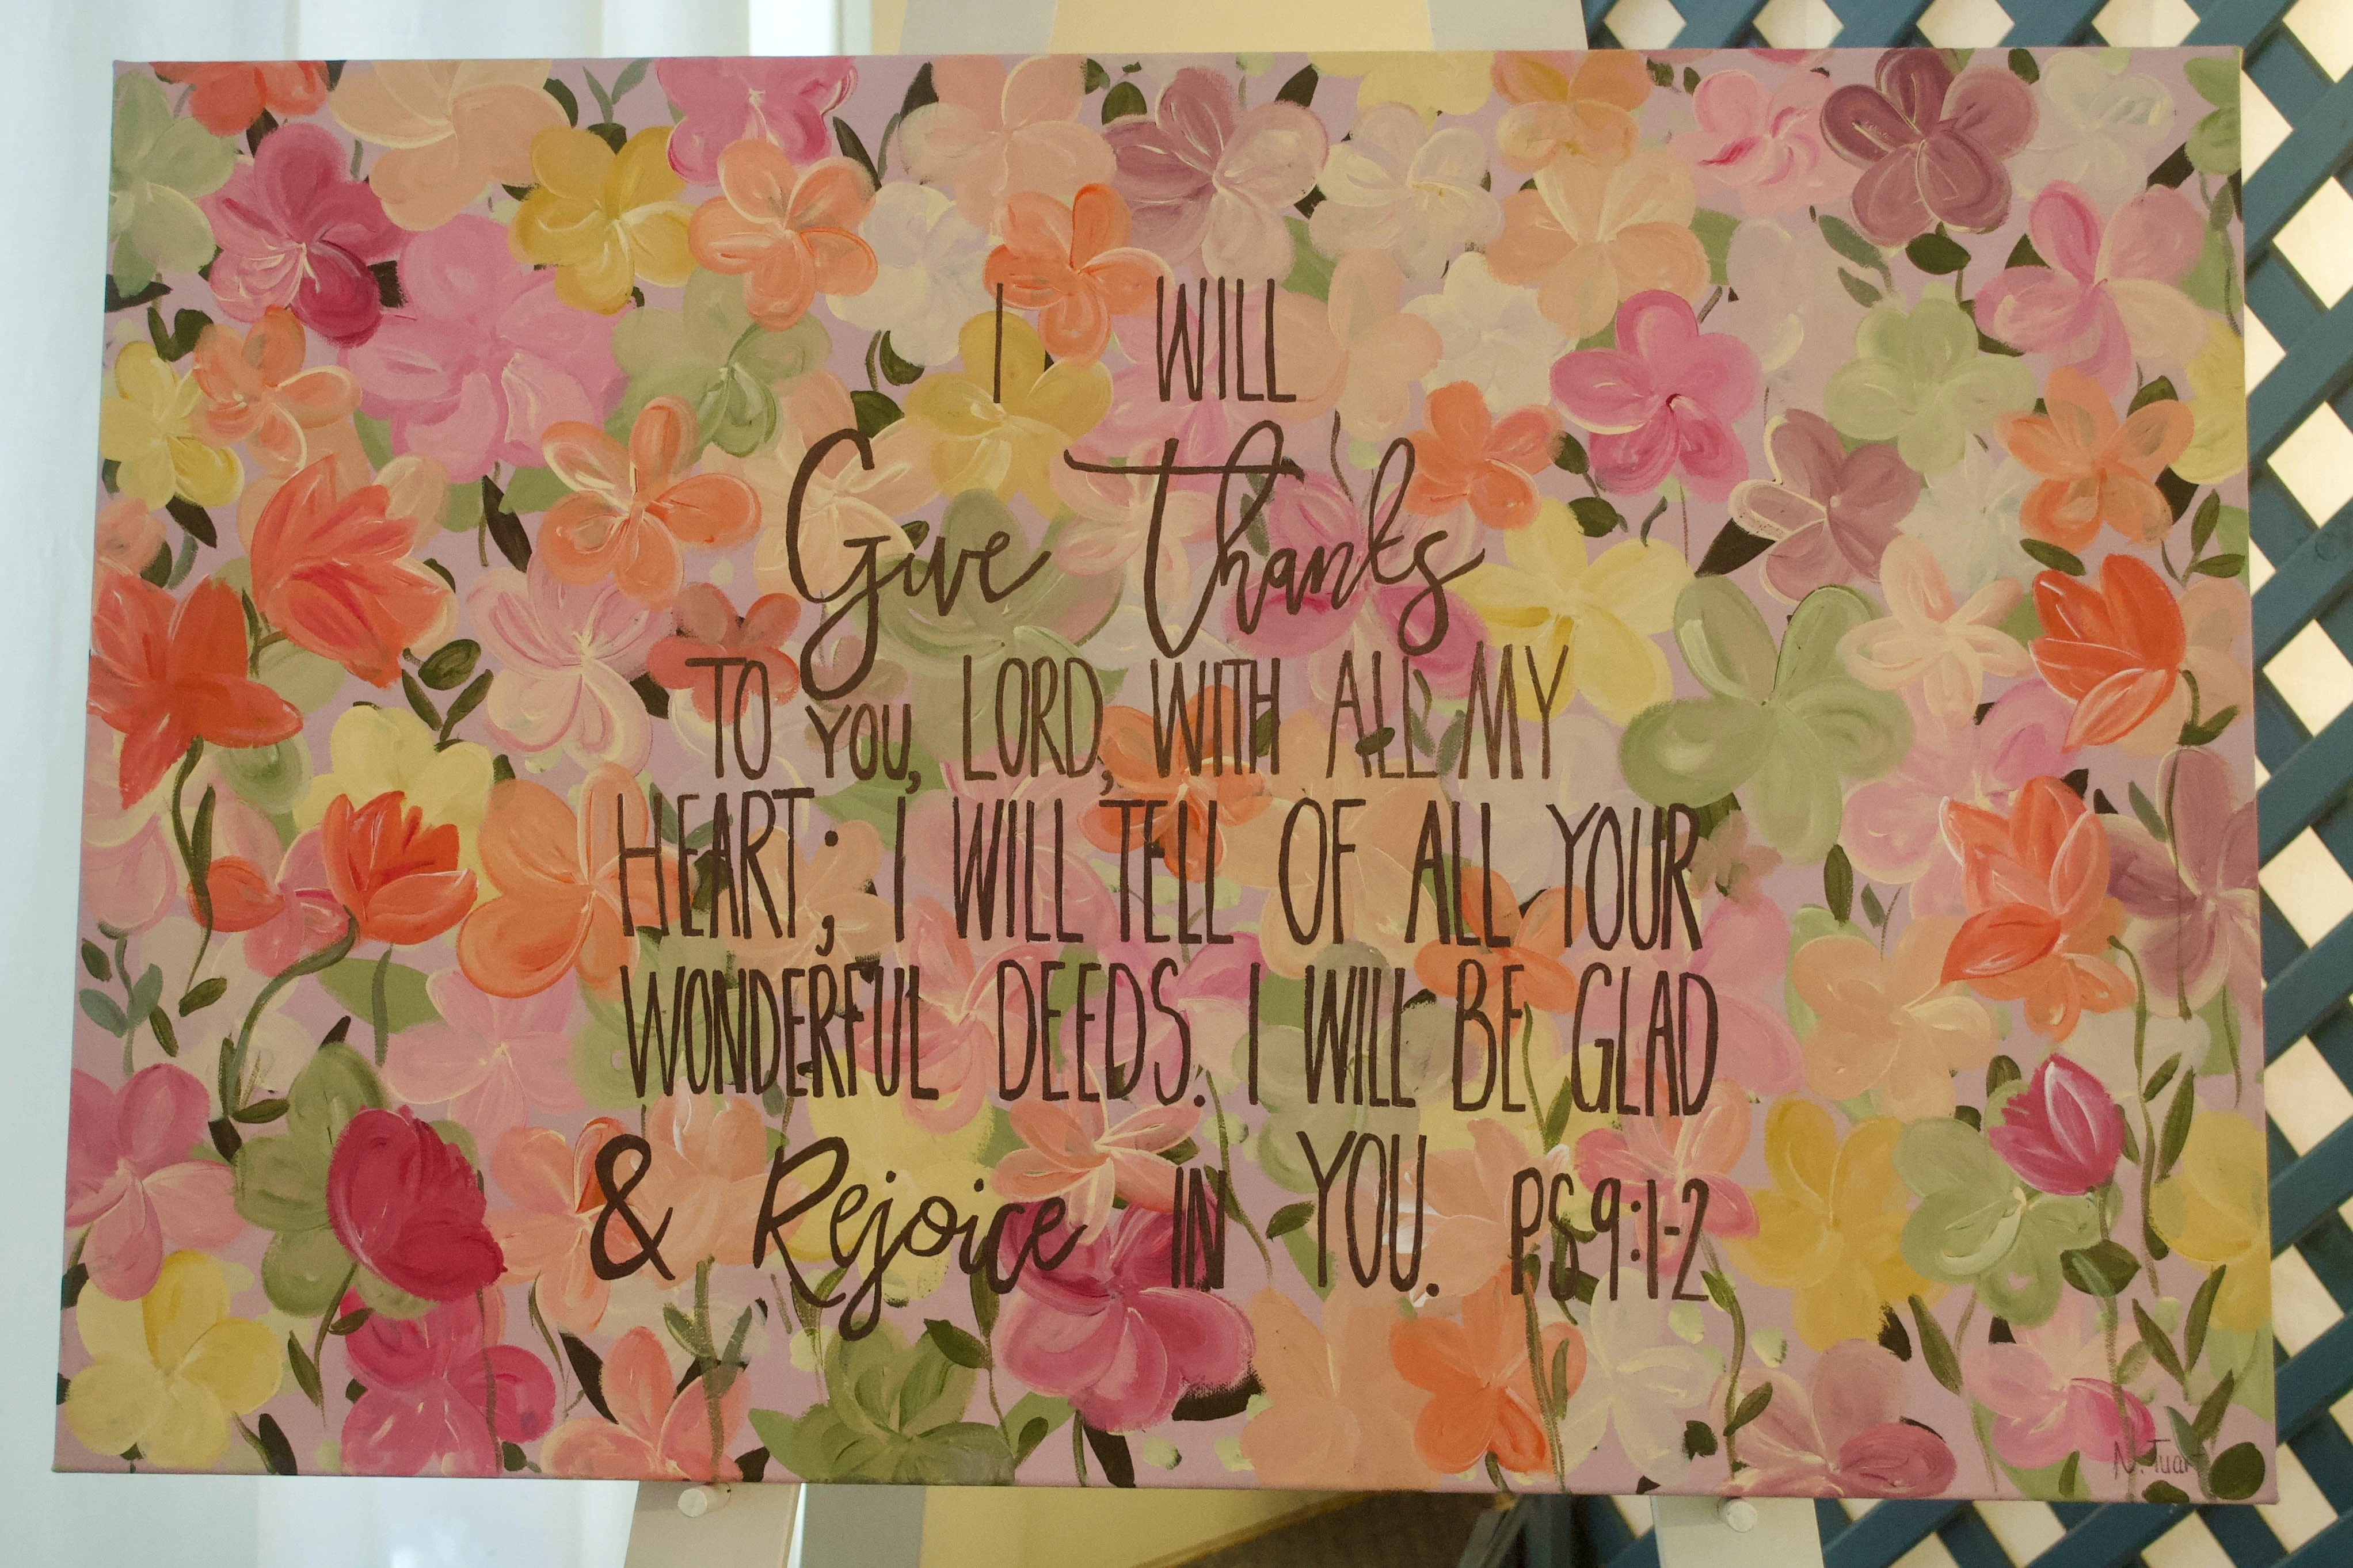 I WILL
Give Thanks
TO YOU, LORD, WITH ALL MY
HEART; I WILL TELL OF ALL YOUR
WONDERFUL DEEDS. I WILL BE GLAD
& Rejoice IN YOU. PS 9:1-2
N. Tuart